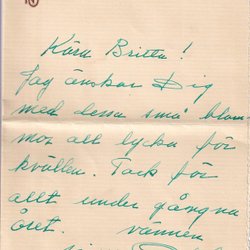 Kära Britta!
Jag önskar Dig
med dessa små blom
mor all lycka för
kvällen. Tack för
allt under gångna
året. vännen